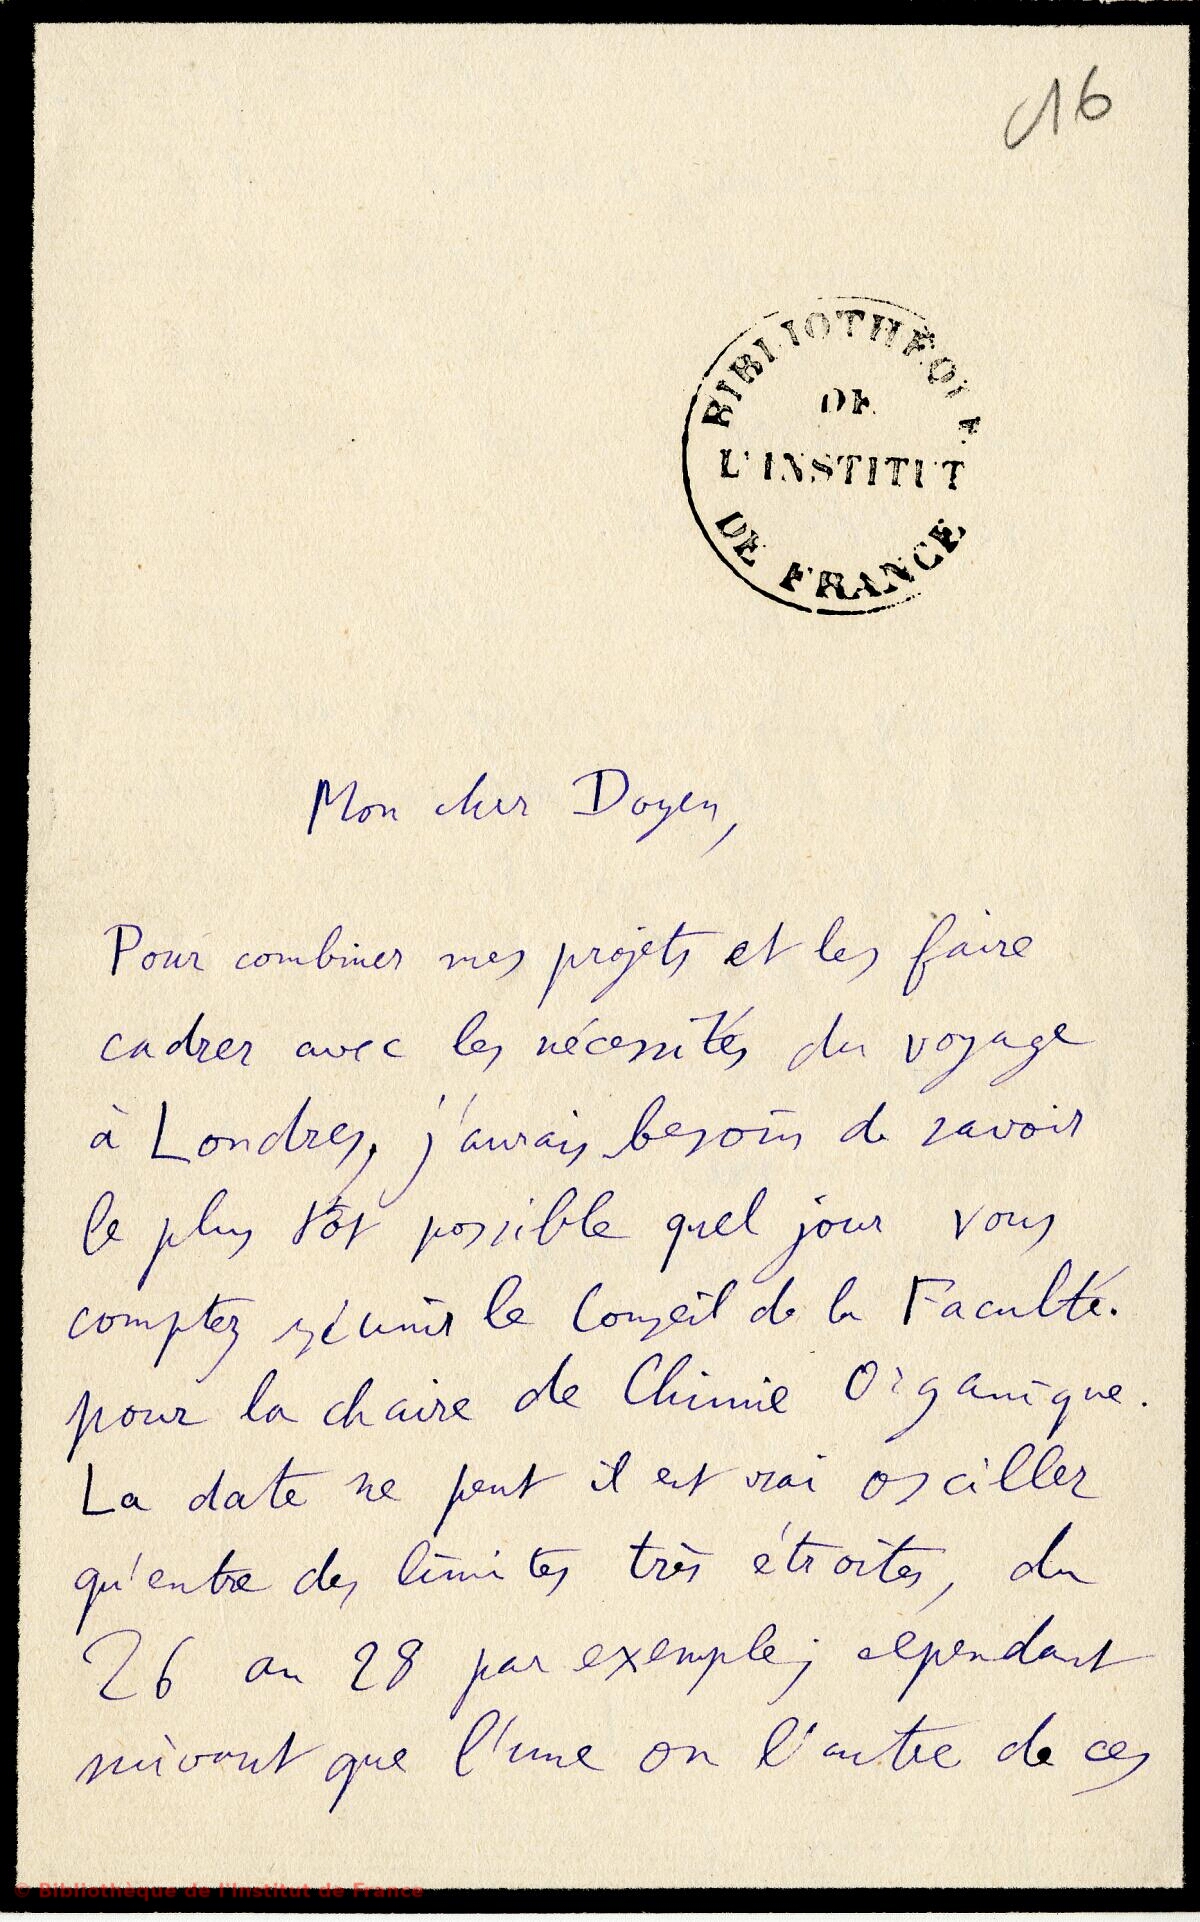 16
BIBLIOTHÈQUE
DE
L'INSTITUT
DE FRANCE
Mon cher Doyen,
Pour combiner mes projets et les faire
cadrer avec les nécessités du voyage
à Londres, j'aurais besoin de savoir
le plus tôt possible quel jour vous
comptez réunir le Conseil de la Faculté.
pour la chaire de Chimie Organique.
La date ne peut il est vrai osciller
qu'entre des limites très étroites, du
26 au 28 par exemple; cependant
suivant que l'une ou l'autre de ces
© Bibliothèque de l'Institut de France